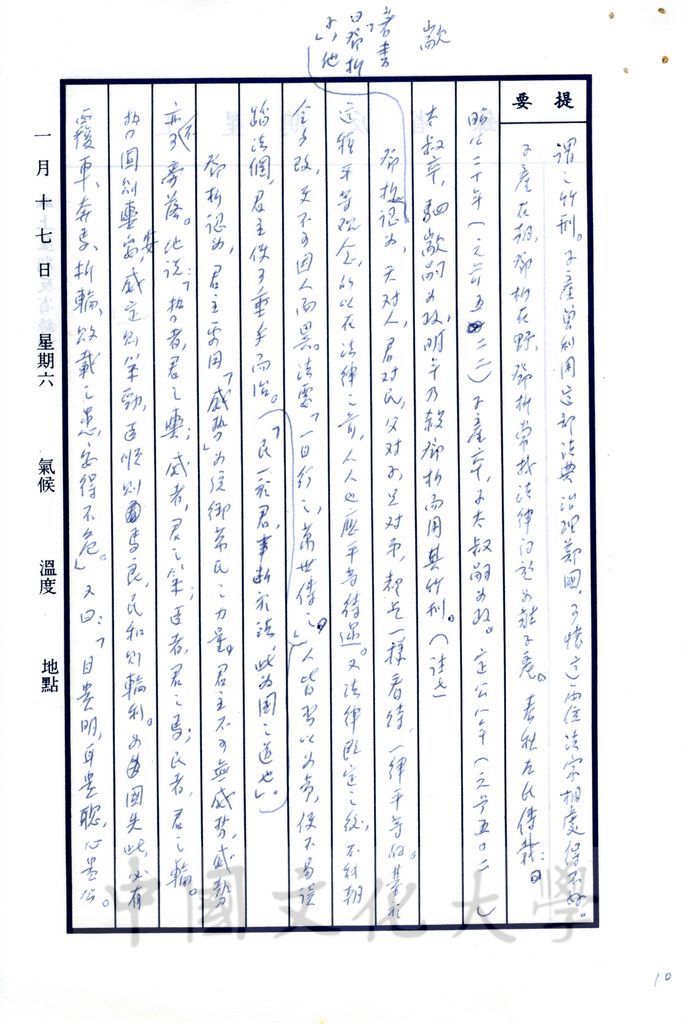 提要
謂之竹刑。子產曾利用這部法典治理鄭國，可惜這兩位法家相處得不好。
子產在朝，鄧析在野，鄧析常找法律問題為難子產。春秋左氏傳載：
昭公二十年（元前五二二）子產卒，子大叔嗣為政。定公八年（元前五〇二）
大叔卒，駟歂嗣為政，明年乃殺鄧析而用其竹刑。（註七）
歂
著書
曰鄧析
子，他
鄧析認為，天對人，君對民，父對子，兄對弟，都是一樣看待，一律平等的。基於
這種平等觀念，所以在法律之前，人人也應平等待遇。又法律既定之後，不能朝
令夕改，更不可因人而異。法要「一日行之，萬世傳之」，人皆習以為常，便不易誤
蹈法網，君主便可垂手而治。（「民一於君，事斷於法，此為國之道也」。）
鄧析認為，君主要用「威勢」為統御萬民之力量，君主不可無威勢，威勢
亦不可旁落。他說：「勢者，君之輿；威者，君之策；臣者，君之馬；民者，君之輪。
勢固則輿安，威定則策勁，臣順則馬良，民和則輪利。為國失此，必有
覆車、奔馬、折輪、敗載之患，安得不危。」又曰：「目貴明，耳貴聰，心貴公。
一月十七日 星期六 氣候 溫度 地點
中國文化大學
10